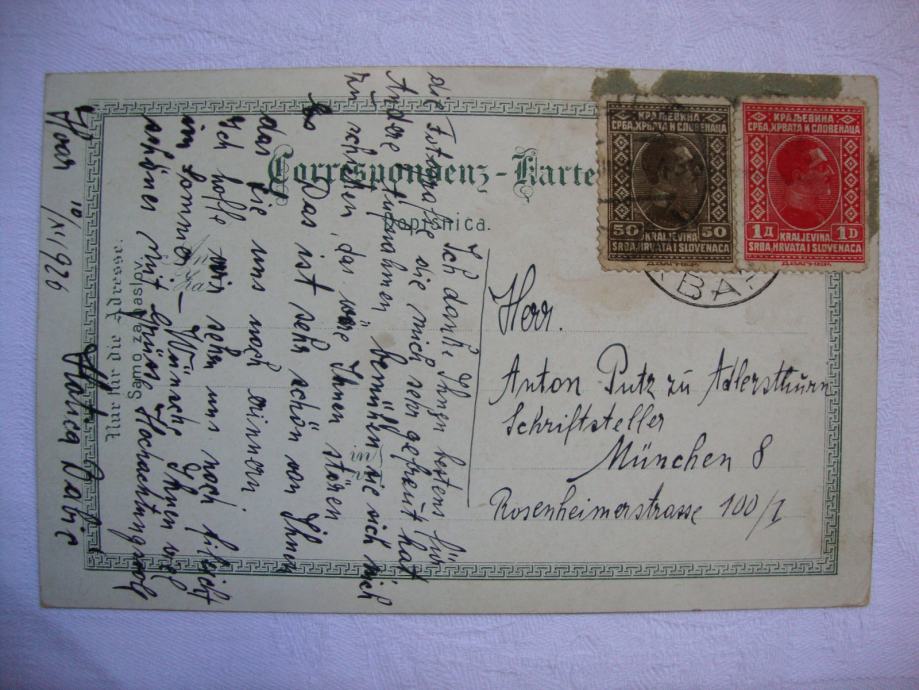 Correspondenz-Karte
Dopisnica.
Nur für die Adresse.
Samo za naslov.
КРАЉЕВИНА
СРБА, ХРВАТА И СЛОВЕНАЦА
50 50
KRALJEVINA
SRBA, HRVATA I SLOVENACA
КРАЉЕВИНА
СРБА, ХРВАТА И СЛОВЕНАЦА
1 Д 1 D
KRALJEVINA
SRBA, HRVATA I SLOVENACA
BA
Herr.
Anton Putz zu Adlersthurn
Schriftsteller
München 8
Rosenheimerstrasse 100/I
Ich danke Ihnen bestens für
die Fotografie die mich sehr gefreut hat
Andere Aufnahmen, bemühen sie sich nicht
zu schicken, das Ihnen stören
Das ist sehr schön von Ihnen
das sie uns noch erinnern
Ich hoffe wir sehn uns noch
im Sommer - Wünsche Ihnen viel
schönes mit Grüße Hochachtungsvoll
Hvar 10/IV 1926
Babić